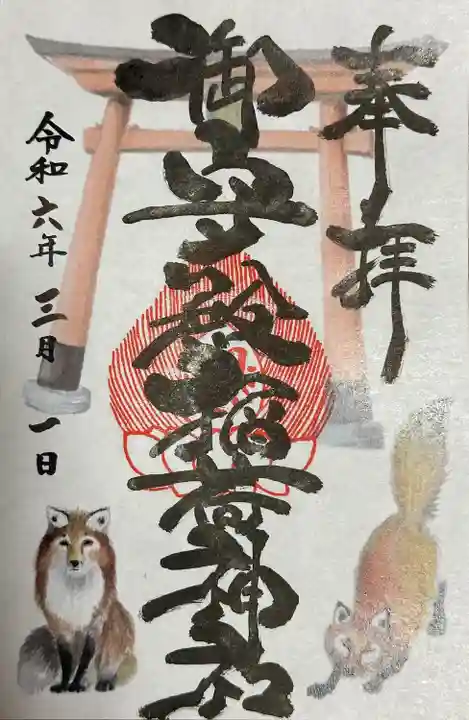 奉拝
御守殿稲荷神社
令和六年 三月 一日